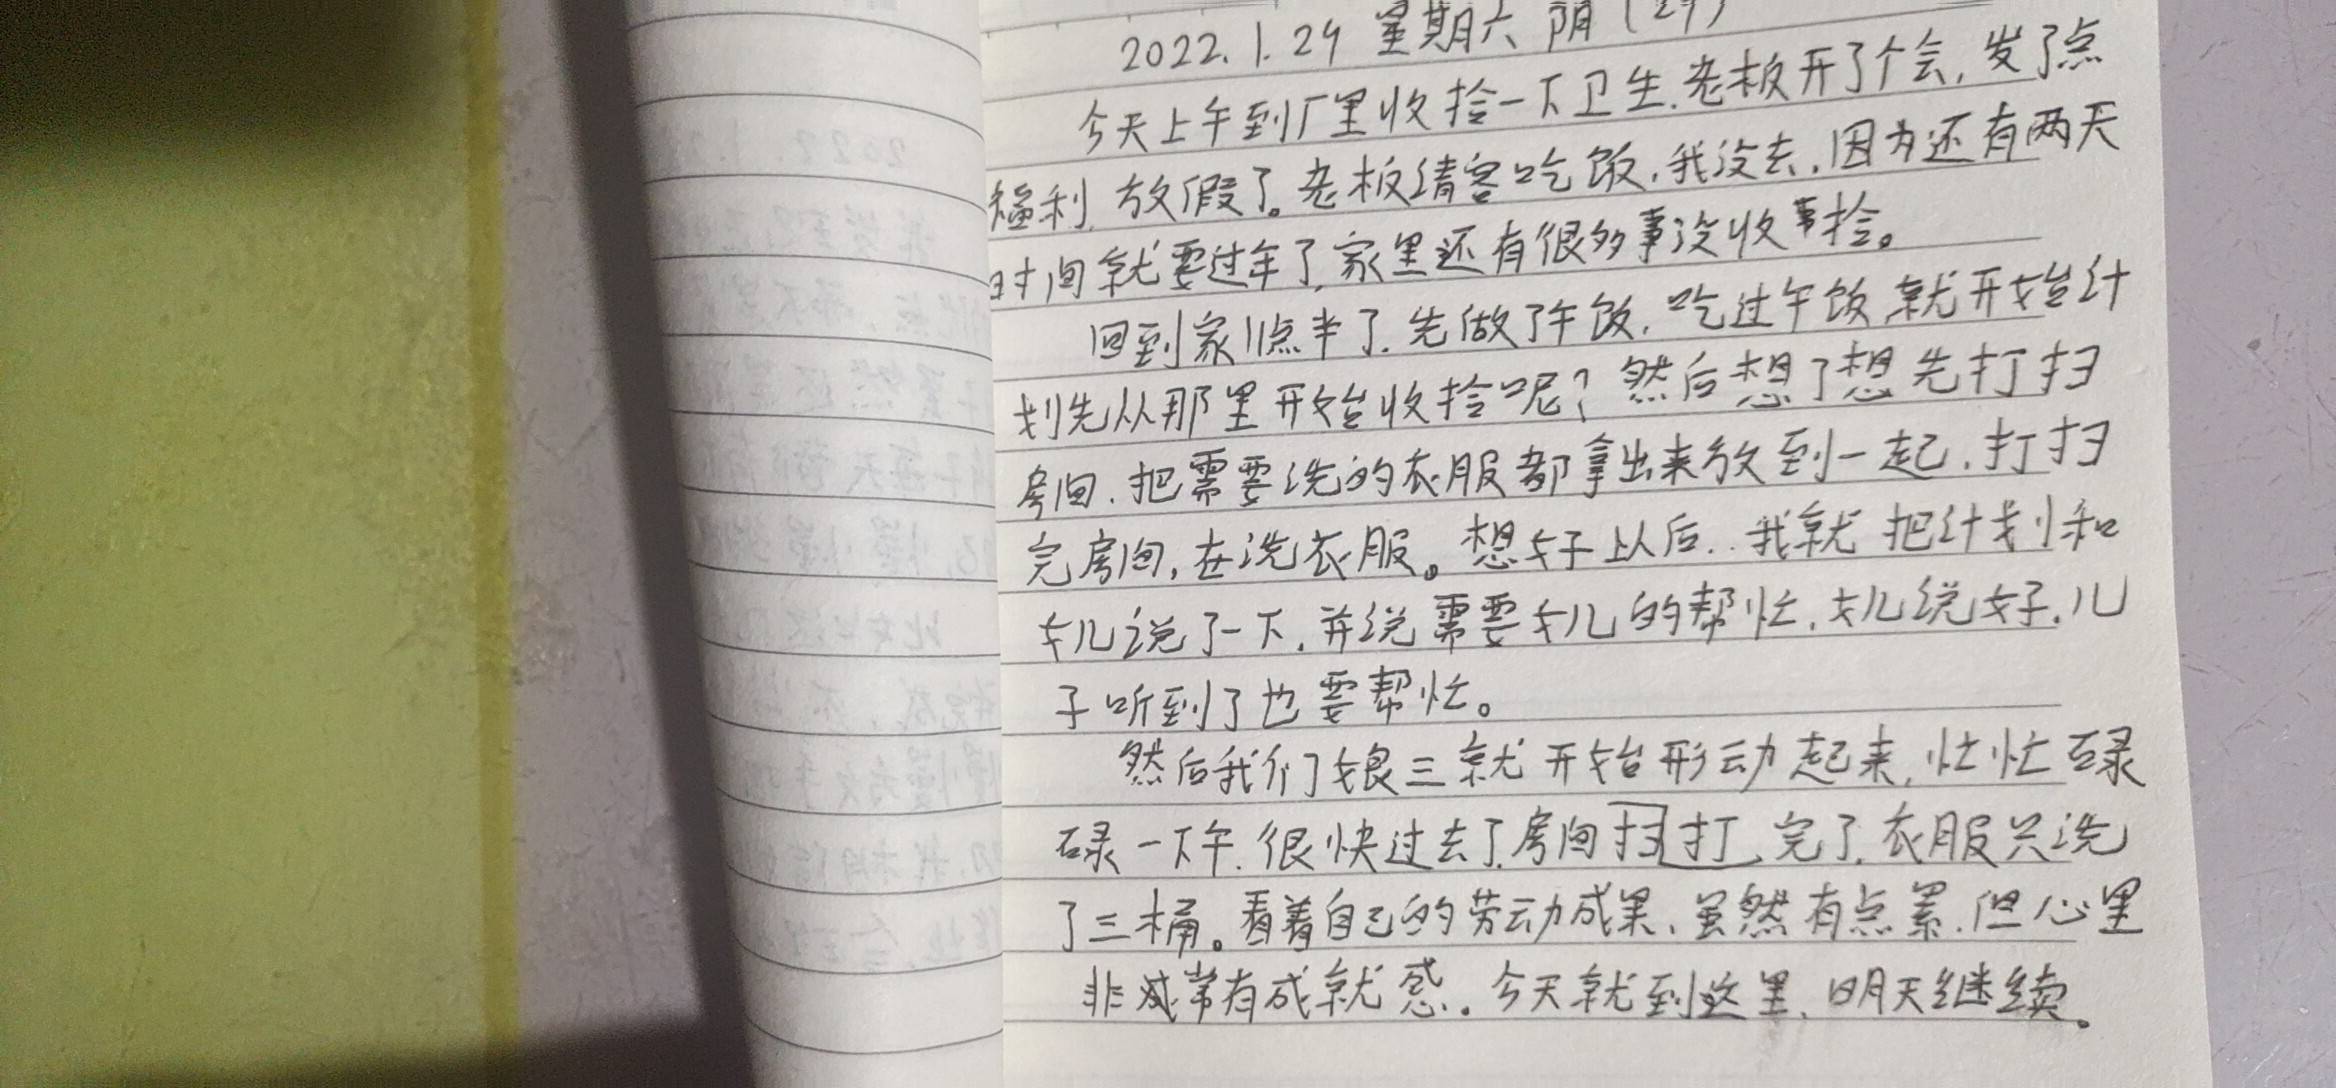 2022.1.29 星期六 阴 (29)
今天上午到厂里收捡一下卫生.老板开了个会,发了点
福利.放假了。老板请客吃饭,我没去,因为还有两天
时间就要过年了,家里还有很多事没收事捡。
回到家1点半了.先做了午饭,吃过午饭,就开始计
划先从那里开始收捡呢?然后想了想先打扫
房间.把需要洗的衣服都拿出来放到一起.打扫
完房间,在洗衣服。想好以后..我就把计划和
女儿说了一下.并说需要女儿的帮忙,女儿说好.儿
子听到了也要帮忙。
然后我们娘三就开始形动起来,忙忙碌
碌一下午.很快过去了.房间扫打完了.衣服只洗
了三桶。看着自己的劳动成果、虽然有点累.但心里
非常有成就感。今天就到这里,明天继续。